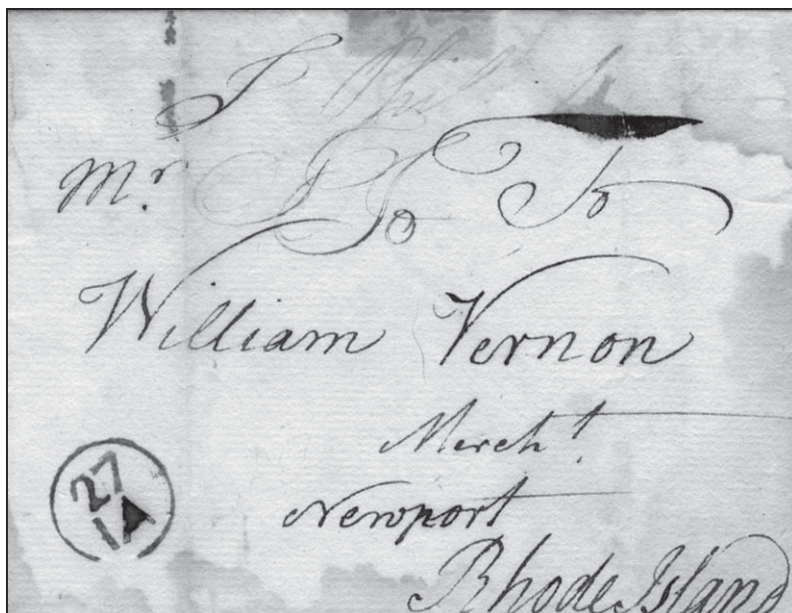 Mr.
To
William Vernon
Mercht
Newport
Rhode Island
27
IA